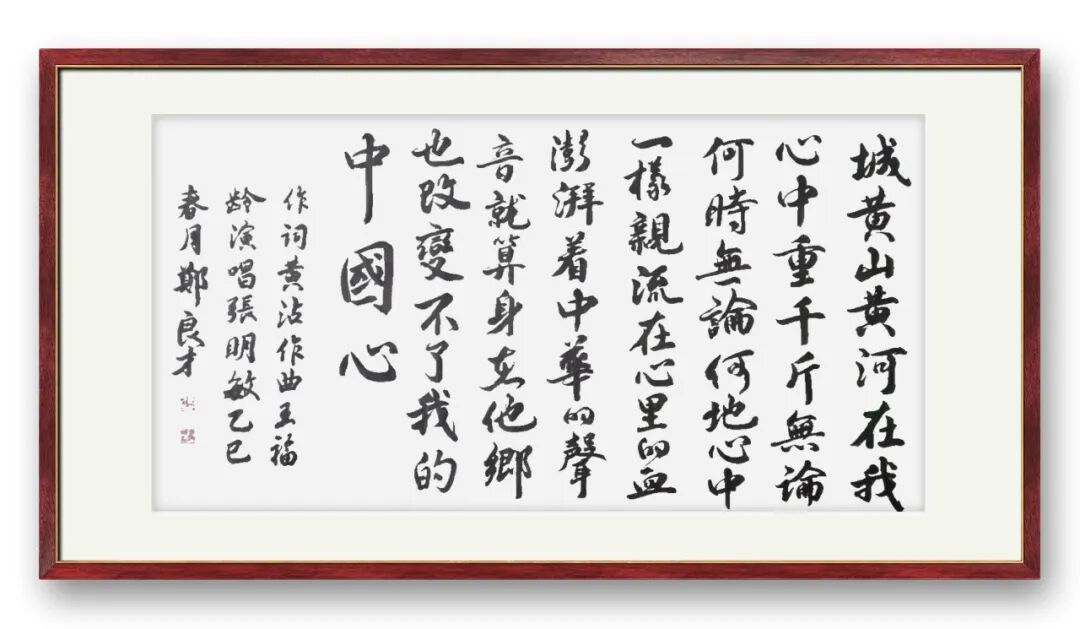 城黄山黄河在我
心中重千斤無論
何時無論何地心中
一樣親流在心里的血
澎湃着中華的聲
音就算身在他鄉
也改變不了我的
中國心
作词黄沾作曲王福
龄演唱張明敏乙巳
春月鄭良才